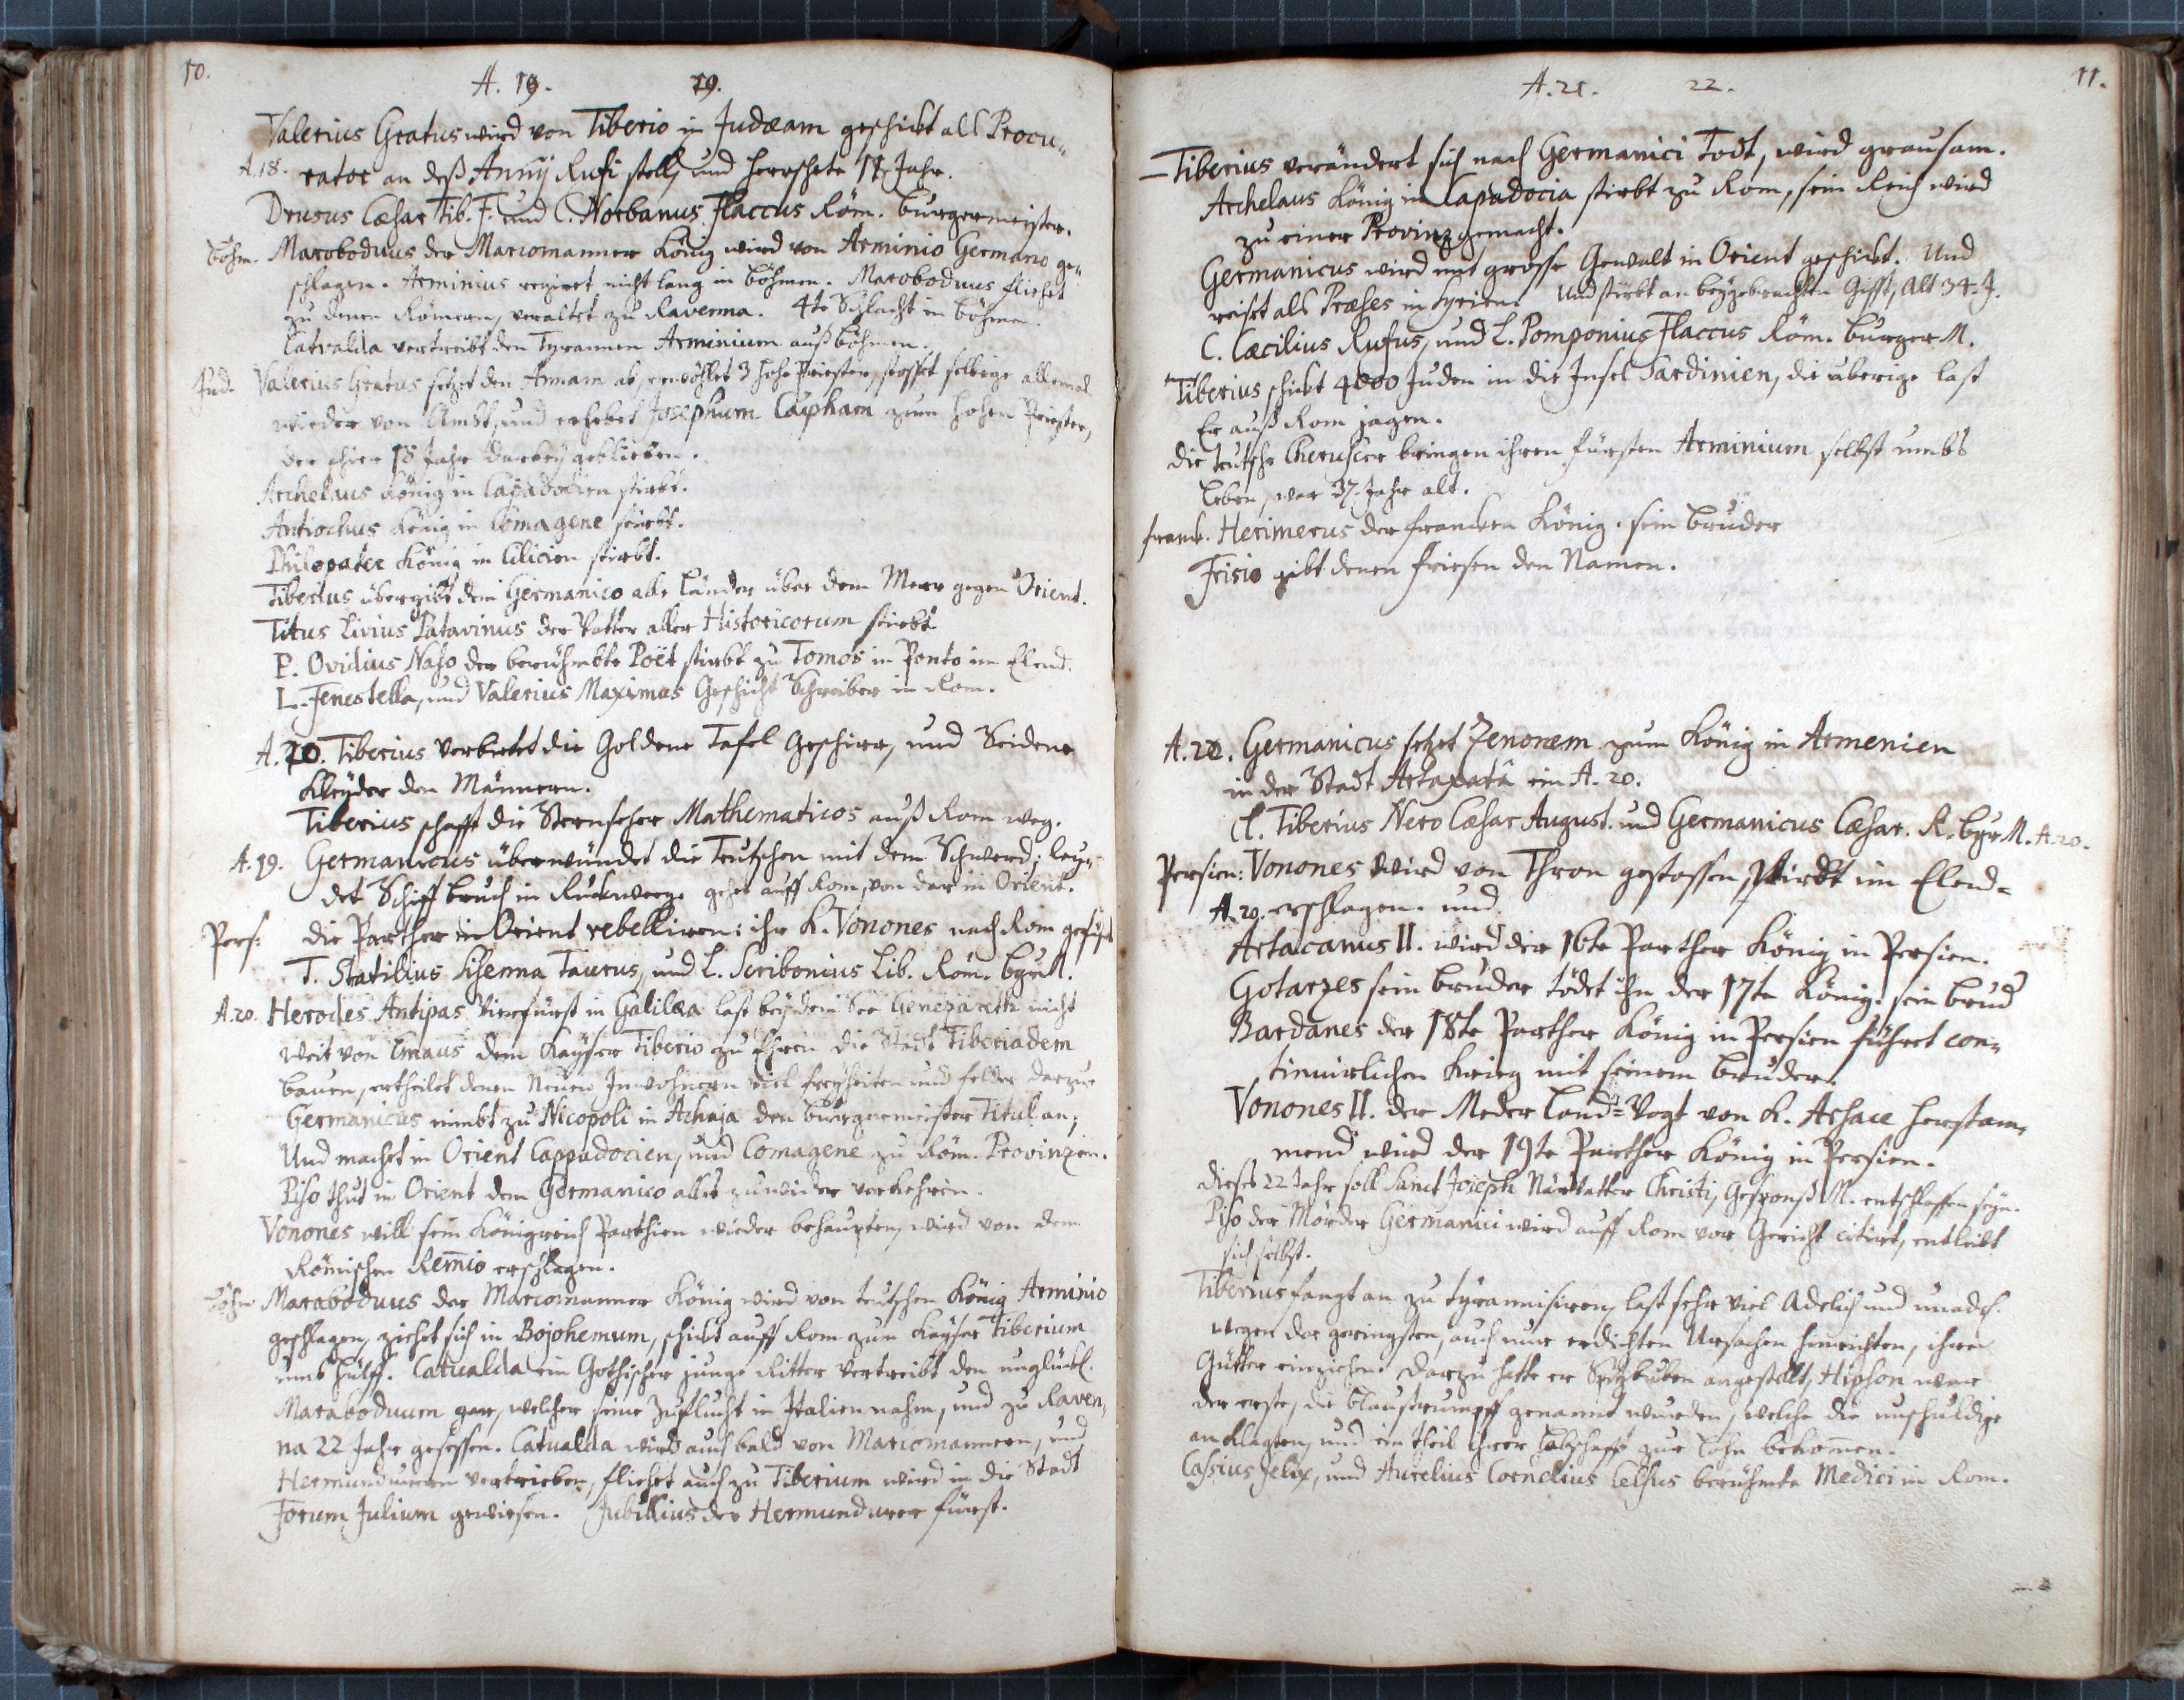 10.
A. 19. 19.
Valerius Gratus wird von Tiberio in Judæam geschickt als Procu„
A. 18. rator an deß Annij Rufi stell, und herrschete 11 Jahr.
Drusus Cæsar Tib. F. und C. Norbanus Flaccus Röm. burgermeister.
böhm. Maroboduus der Marcomanner König wird von Arminio Germano ge„
schlagen. Arminius regiret nicht lang in böhmen. Maroboduus fliehet
zu denen Römern, veraltet zu Ravenna. 4te Schlacht in böhmen.
Catvalda vertreibt den Tyrannen Arminium auß böhmen.
Jud. Valerius Gratus setzet den Annam ab, erwöhlet 3 hohe Priester, stosset selbige allemal
wieder von Ambt, und erhebet Josephum Caipham zum hohen Priester,
der schier 18 Jahr darbey geblieben.
Archelaus König in Capadocien stirbt.
Antiochus König in Comagene stirbt.
Philopater König in Cilicien stirbt.
Tiberius übergibt dem Germanico alle Länder über dem Meer gegen Orient.
Titus Livius Patavinus der Vatter aller Historicorum stirbt.
P. Ovidius Naso der berühmbte Poët stirbt zu Tomos in Ponto im Elend.
L. Fenestella, und Valerius Maximus Geschicht Schreiber in Rom.
A. 20. Tiberius verbietet die Goldene Tafel Geschirr, und Seidene
Kleyder den Männern.
Tiberius schafft die Sternseher Mathematicos auß Rom weg.
A. 19. Germanicus überwündet die Teutschen mit dem Schwerd; ley„
det Schiffbruch in Ruckweege gehet auff Rom, von dar in Orient.
Pers: die Parther in Orient rebelliren: ihr K. Vonones nach Rom
T. Statilius Sisenna Taurus, und L. Scribonius Lib. Röm. bgrM.
A. 20. Herodes Antipas Vierfürst in Galilæa last bey dem See Genezareth nicht
weit von Emaus dem Kayser Tiberio zu Ehren die Stadt Tiberiadem
bauen, ertheilet denen Neuen Inwohnern viel freyheiten und felder darzu.
Germanicus nimbt zu Nicopoli in Achaja den burgermeister Titul an;
Und machet in Orient Cappadocien, und Comagene zu Röm. Provinzen.
Piso thut in Orient dem Germanico alles zuwider verkehren.
Vonones will sein Königreich Parthien wieder behaupten, wird von dem
Römischen Remio erschlagen.
böhm Maraboduus der Marcomanner König wird von teutschen König Arminio
geschlagen, ziehet sich in Bojohemum, schickt auff Rom zum Kayser Tiberium
umb hülff. Catualda ein Gothischer junge Ritter vertreibt den unglückl.
Maraboduum gar, welcher seine Zuflucht in Italien nahm, und zu Raven„
na 22 Jahr gesessen. Catualda wird auch bald von Marcomannern, und
Hermundurern vertrieben, fliehet auch zu Tiberium wird in die Stadt
Forum Julium gewiesen. Jubillius der Hermundurer fürst.
11.
A. 21. 22.
Tiberius verändert sich nach Germanici Todt, wird grausam.
Archelaus König in Capadocia stirbt zu Rom, sein Reich wird
zu einer Provinz gemacht.
Germanicus wird mit grosse Gewalt in Orient geschickt. Und
reiset als Præses in Syrien. Und stirbt an beygebrachten Gifft, Alt 34. J.
C. Cæcilius Rufus, und L. Pomponius Flaccus Röm. burger M.
Tiberius schickt 4000 Juden in die Insel Sardinien, die überige last
Er auß Rom jagen.
die teutsche Cherusker bringen ihren fürsten Arminium selbst umbs
Leben, war 37. Jahr alt.
franck. Herimerus der francken König. sein bruder
Frisio gibt denen friesen den Namen.
A. 20. Germanicus setzet Zenonem zum König in Armenien
in der Stadt Artaxatâ ein A. 20.
Cl. Tiberius Nero Cæsar August. und Germanicus Cæsar. R. bgrM. A. 20.
Persien: Vonones wird von Thron gestossen, stirbt im Elend=
A. 20. erschlagen. und
Artacanus II. wird der 16te Parther König in Persien.
Gotarzes sein bruder tödet ihn der 17te König. sein brud
Bardanes der 18te Parther König in Persien führet con„
tinuirlichen Krieg mit seinem bruder.
Vonones II. der Meder Land=Vogt von K. Arsace herstam„
mend wird der 19te Parther König in Persien.
dieses 22 Jahr soll Sanct Joseph Nährvatter Christi, Gesponß M. entschlaffen seyn.
Piso der Mörder Germanici wird auff Rom vor Gericht citirt, entleibt
sich selbst.
Tiberius fangt an zu tyrannisiren, last sehr viel Adelich und unadel.
wegen der geringsten, auch nur erdichten Ursachen hinrichten, ihre
Gütter einziehen. darzu hatte er Spitzbuben angestellt, Hipson war
der erste, die blaustrumpff genannt wurden, welche die unschuldige
anklagten, und ein theil ihrer habschafft zur Lohn bekommen.
Cassius Felix, und Aurelius Cornelius Celsus berühmte Medici in Rom.